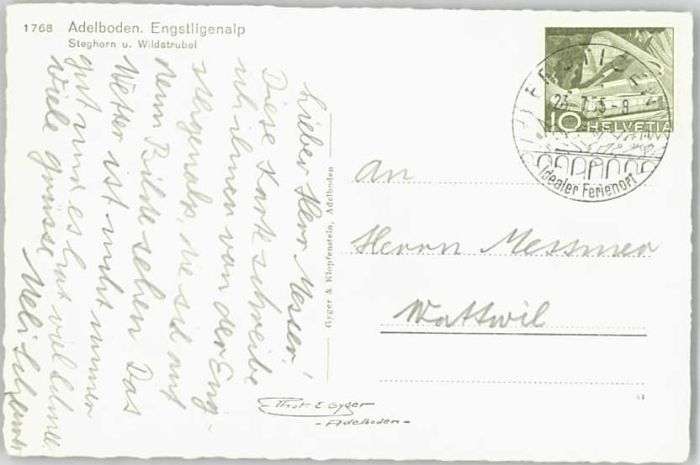 1768 Adelboden. Engstligenalp
Steghorn u. Wildstrubel
Lieber Herr Messer!
Diese Karte schreibe
ich ihnen von der Eng-
stligenalp, die sie auf
dem Bilde sehen. Das
Wetter ist nicht immer
gut und es hat viel Schnee.
Viele Grüsse
Ueli
Gyger & Klopfenstein, Adelboden
10 HELVETIA
Idealer Ferienort
An
Herrn Messmer
Wattwil
Phot E Gyger
- Adelboden -